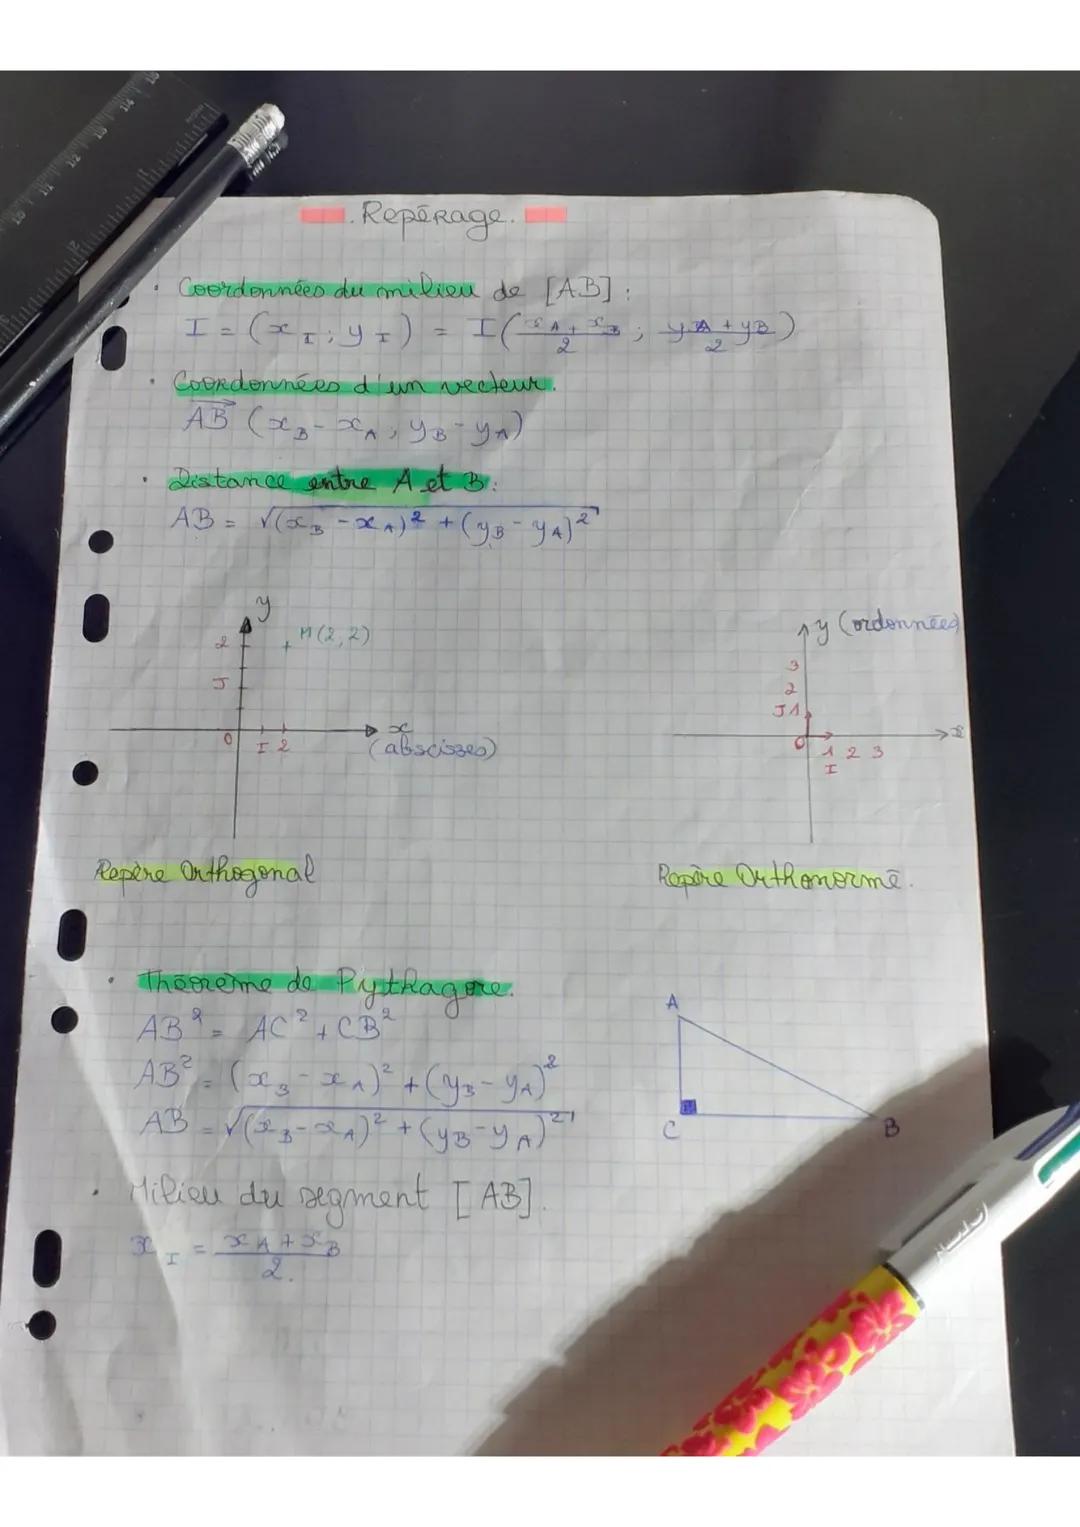 . Repérage.
. Coordonnées du milieu de [AB] :
I = (x_I ; y_I) = I((x_A + x_B)/2 ; (y_A + y_B)/2)
. Coordonnées d'un vecteur.
AB (x_B - x_A ; y_B - y_A)
. Distance entre A et B :
AB = √((x_B - x_A)² + (y_B - y_A)²)
y
2
M(2,2)
J
0 I 2
x
(abscisses)
y (ordonnées)
3
2
J 1
0 1 2 3
I
x
Repère Orthogonal
Repère Orthonormé.
. Théorème de Pythagore.
AB² = AC² + CB²
AB² = (x_B - x_A)² + (y_B - y_A)²
AB = √((x_B - x_A)² + (y_B - y_A)²)
A
C
B
. Milieu du segment [AB].
x_I = (x_A + x_B)/2.
11 12 13 14 15